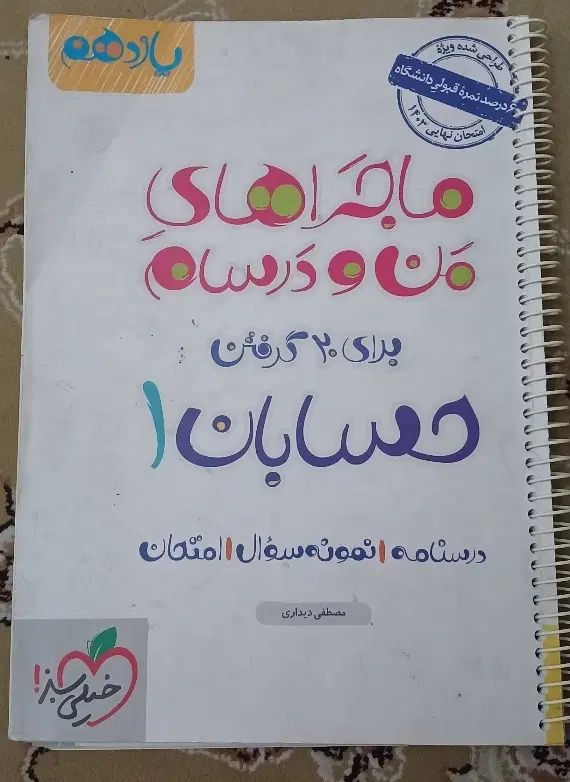 یازدهم
طراحی شده ویژهٔ
۶۰ درصد نمرهٔ قبولی دانشگاه
امتحان نهایی ۱۴۰۳
ماجراهای
من و درسام
برای ۲۰ گرفتن
حسابان ۱
درسنامه | نمونه سؤال | امتحان
مصطفی دیداری
خیلی سبز!